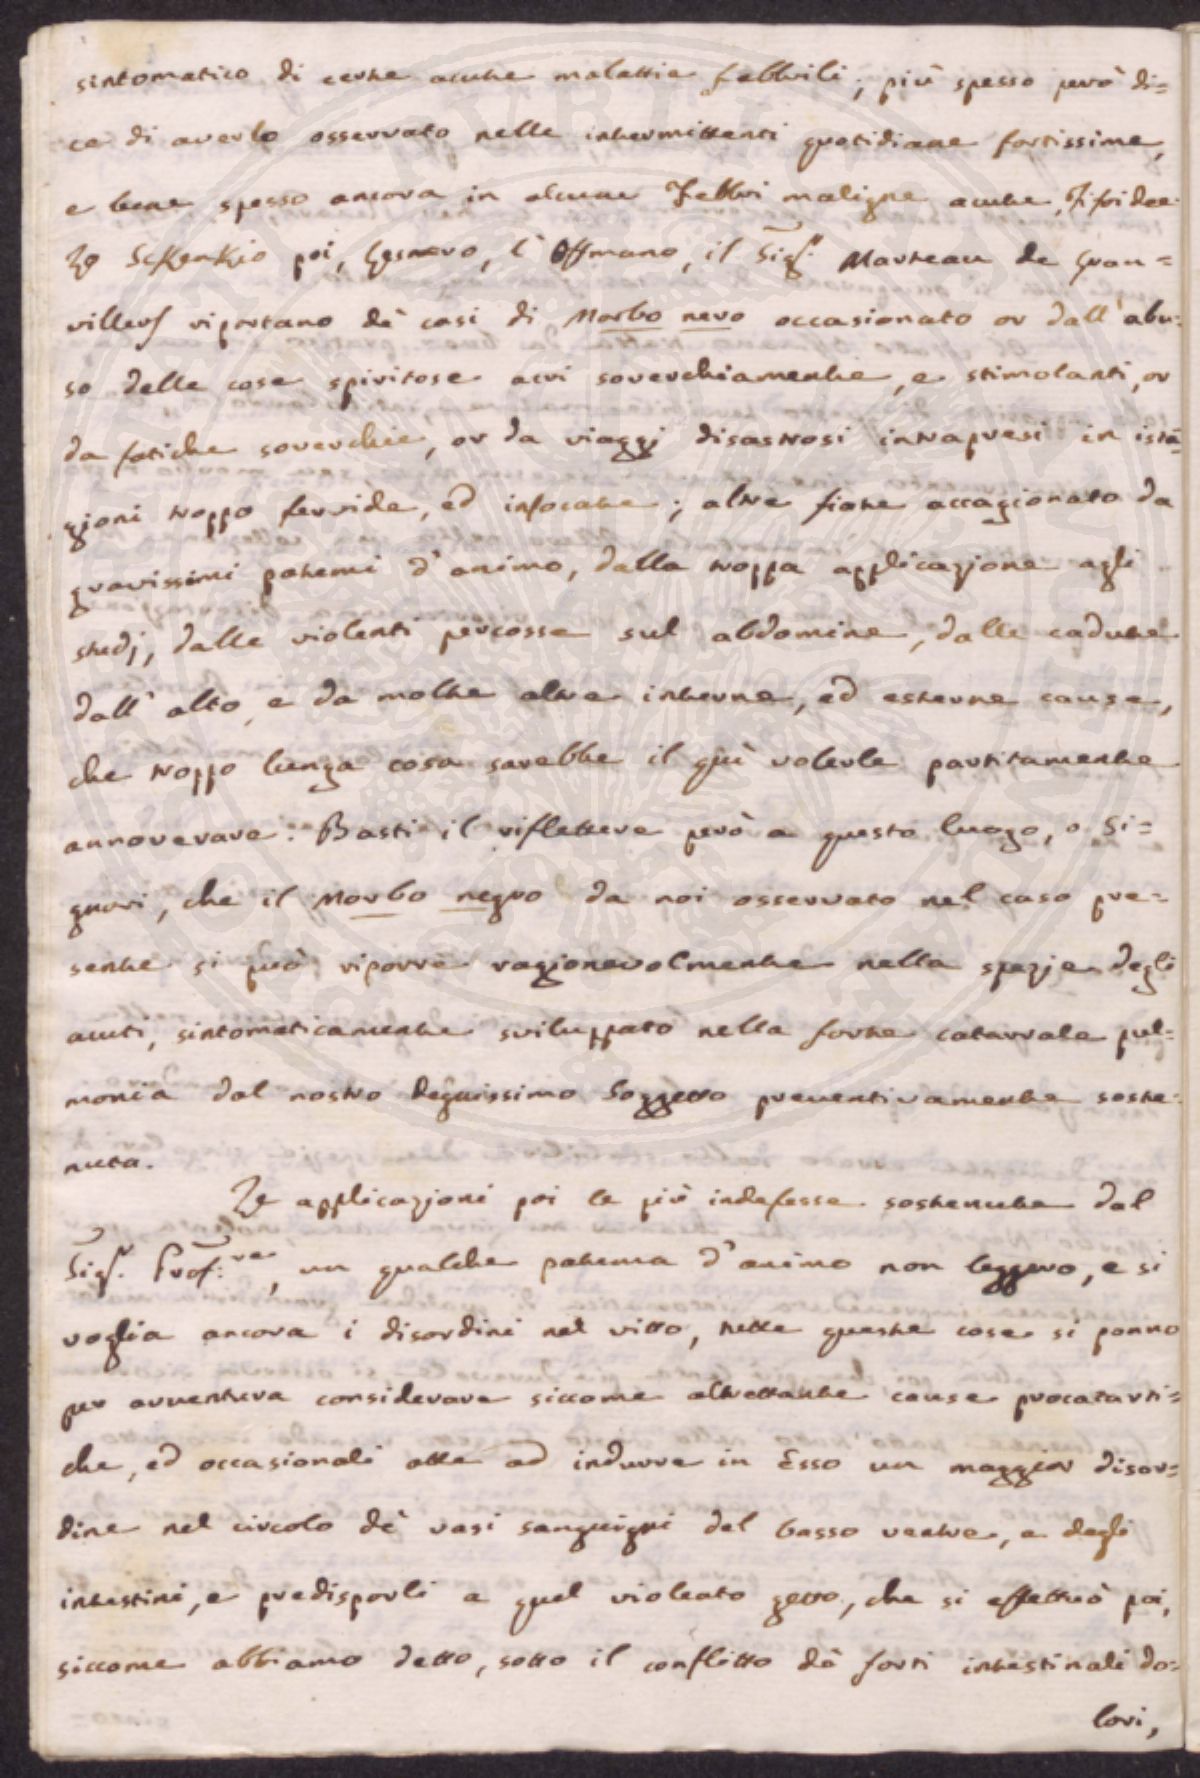 sintomatico di certe acute malattie febbrili; più spesso però di=
ce di averlo osservato nelle intermittenti quotidiane fortissime,
e bene spesso ancora in alcune Febbri maligne acute, tifidee.
Lo Sckenkio poi, Gesnero, l'Offmano, il Sig.r Marteau de Gran=
villers riportano dè casi di Morbo nero occasionato or dall'abu=
so delle cose spiritose acri soverchiamente, e stimolanti, or
da fatiche soverchie, or da viaggj disastrosi intrapresi in ista=
gioni troppo fervide, ed infocate; altre fiate accagionato da
gravissimi patemi d'animo, dalla troppa applicazione agli
studj, dalle violenti percosse sul abdomine, dalle cadute
dall'alto, e da molte altre interne, ed esterne cause,
che troppo lunga cosa sarebbe il quì volerle partitamente
annoverare: Basti il riflettere però a questo luogo, o Si=
gnori, che il Morbo negro da noi osservato nel caso pre=
sente si può riporre ragionevolmente nella spezie degli
acuti, sintomaticamente sviluppato nella forte catarrale pul=
monia dal nostro degnissimo Soggetto preventivamente soste=
nuta.
Le applicazioni poi le più indefesse sostenute dal
Sig.r Prof.re, un qualche patema d'animo non leggero, e si
voglia ancora i disordini nel vitto, tutte queste cose si ponno
per avventura considerare siccome altrettante cause procatarti=
che, ed occasionali atte ad indurre in Esso un maggior disor=
dine nel circolo dè vasi sanguigni del basso ventre, e degli
intestini, e predisporli a quel violento getto, che si effettuò poi,
siccome abbiamo detto, sotto il conflitto dè forti intestinali do=
lori,